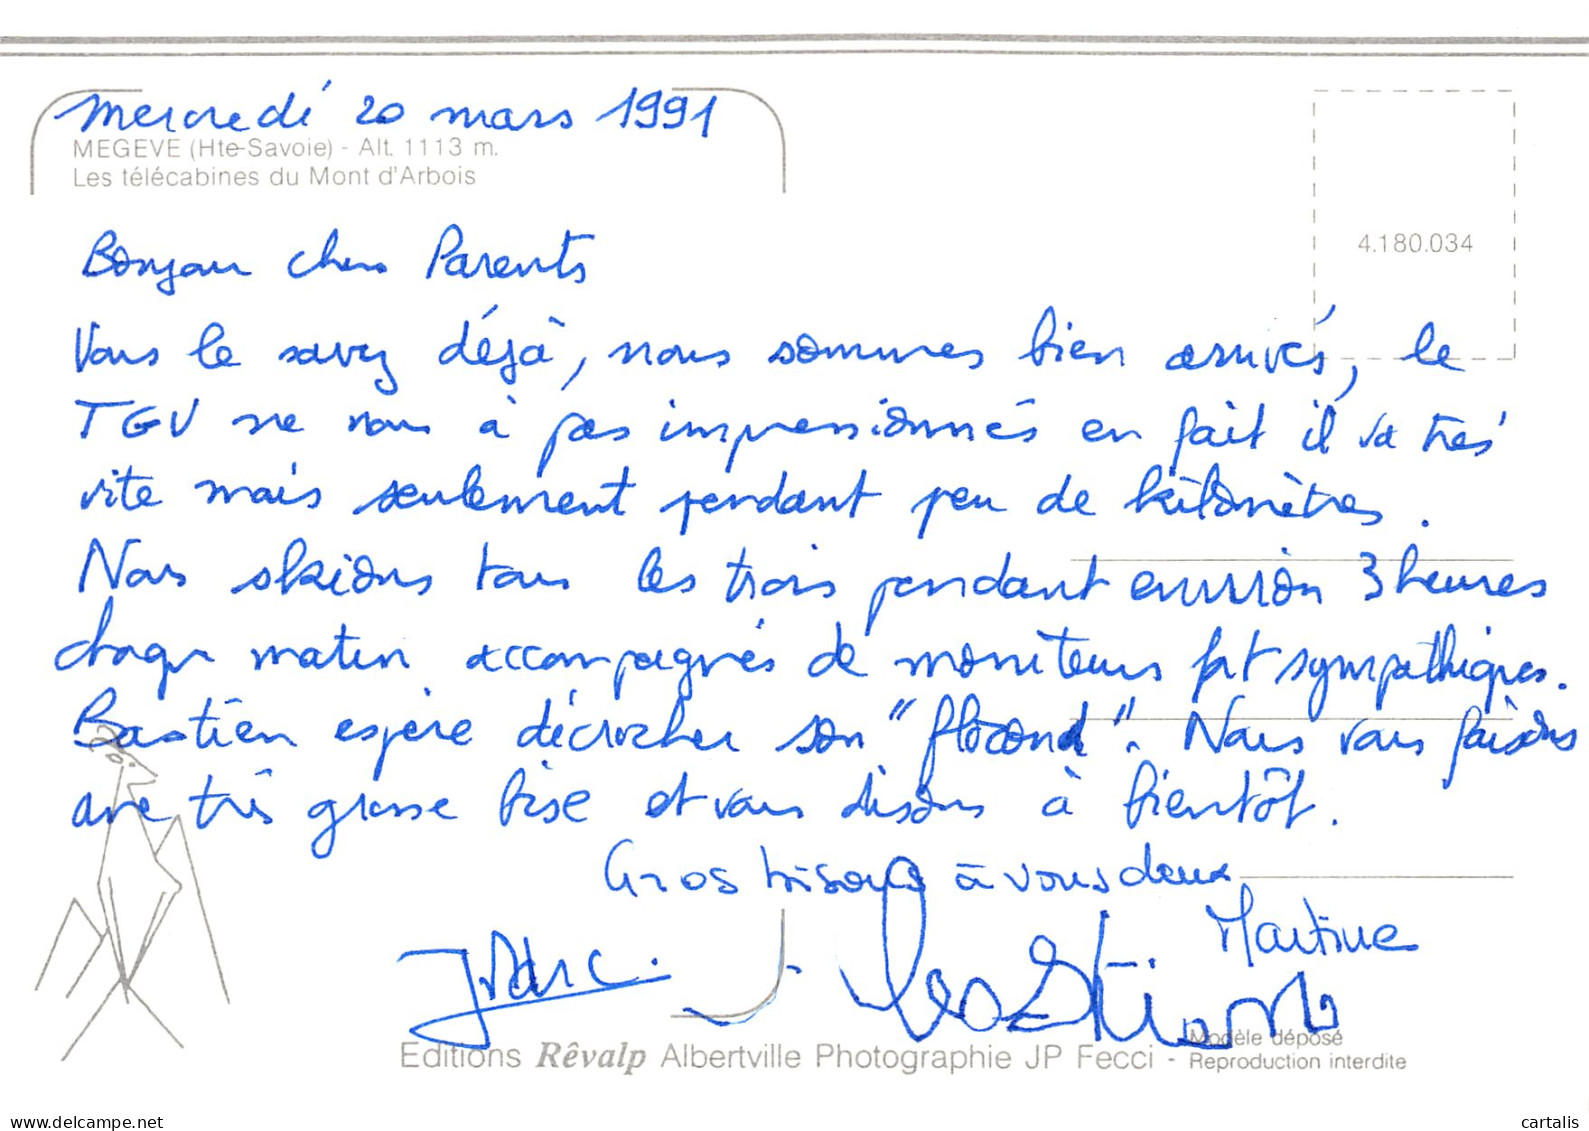 mercredi 20 mars 1991
MEGEVE (Hte-Savoie) - Alt. 1113 m.
Les télécabines du Mont d'Arbois
4.180.034
Bonjour chers Parents
Vous le savez déjà, nous sommes bien arrivés, le
TGV ne nous à pas impressionnés en fait il va très
vite mais seulement pendant peu de kilomètres.
Nous skions tous les trois pendant environ 3 heures
chaque matin accompagnés de moniteurs fort sympathiques.
Bastien espère décrocher son "flocon". Nous vous faisons
une très grosse bise et vous disons à bientôt.
Gros bisous à vous deux
Martine
JMarc.
Bastien
Editions Rêvalp Albertville Photographie JP Fecci - Modèle déposé
Reproduction interdite
www.delcampe.net
cartalis